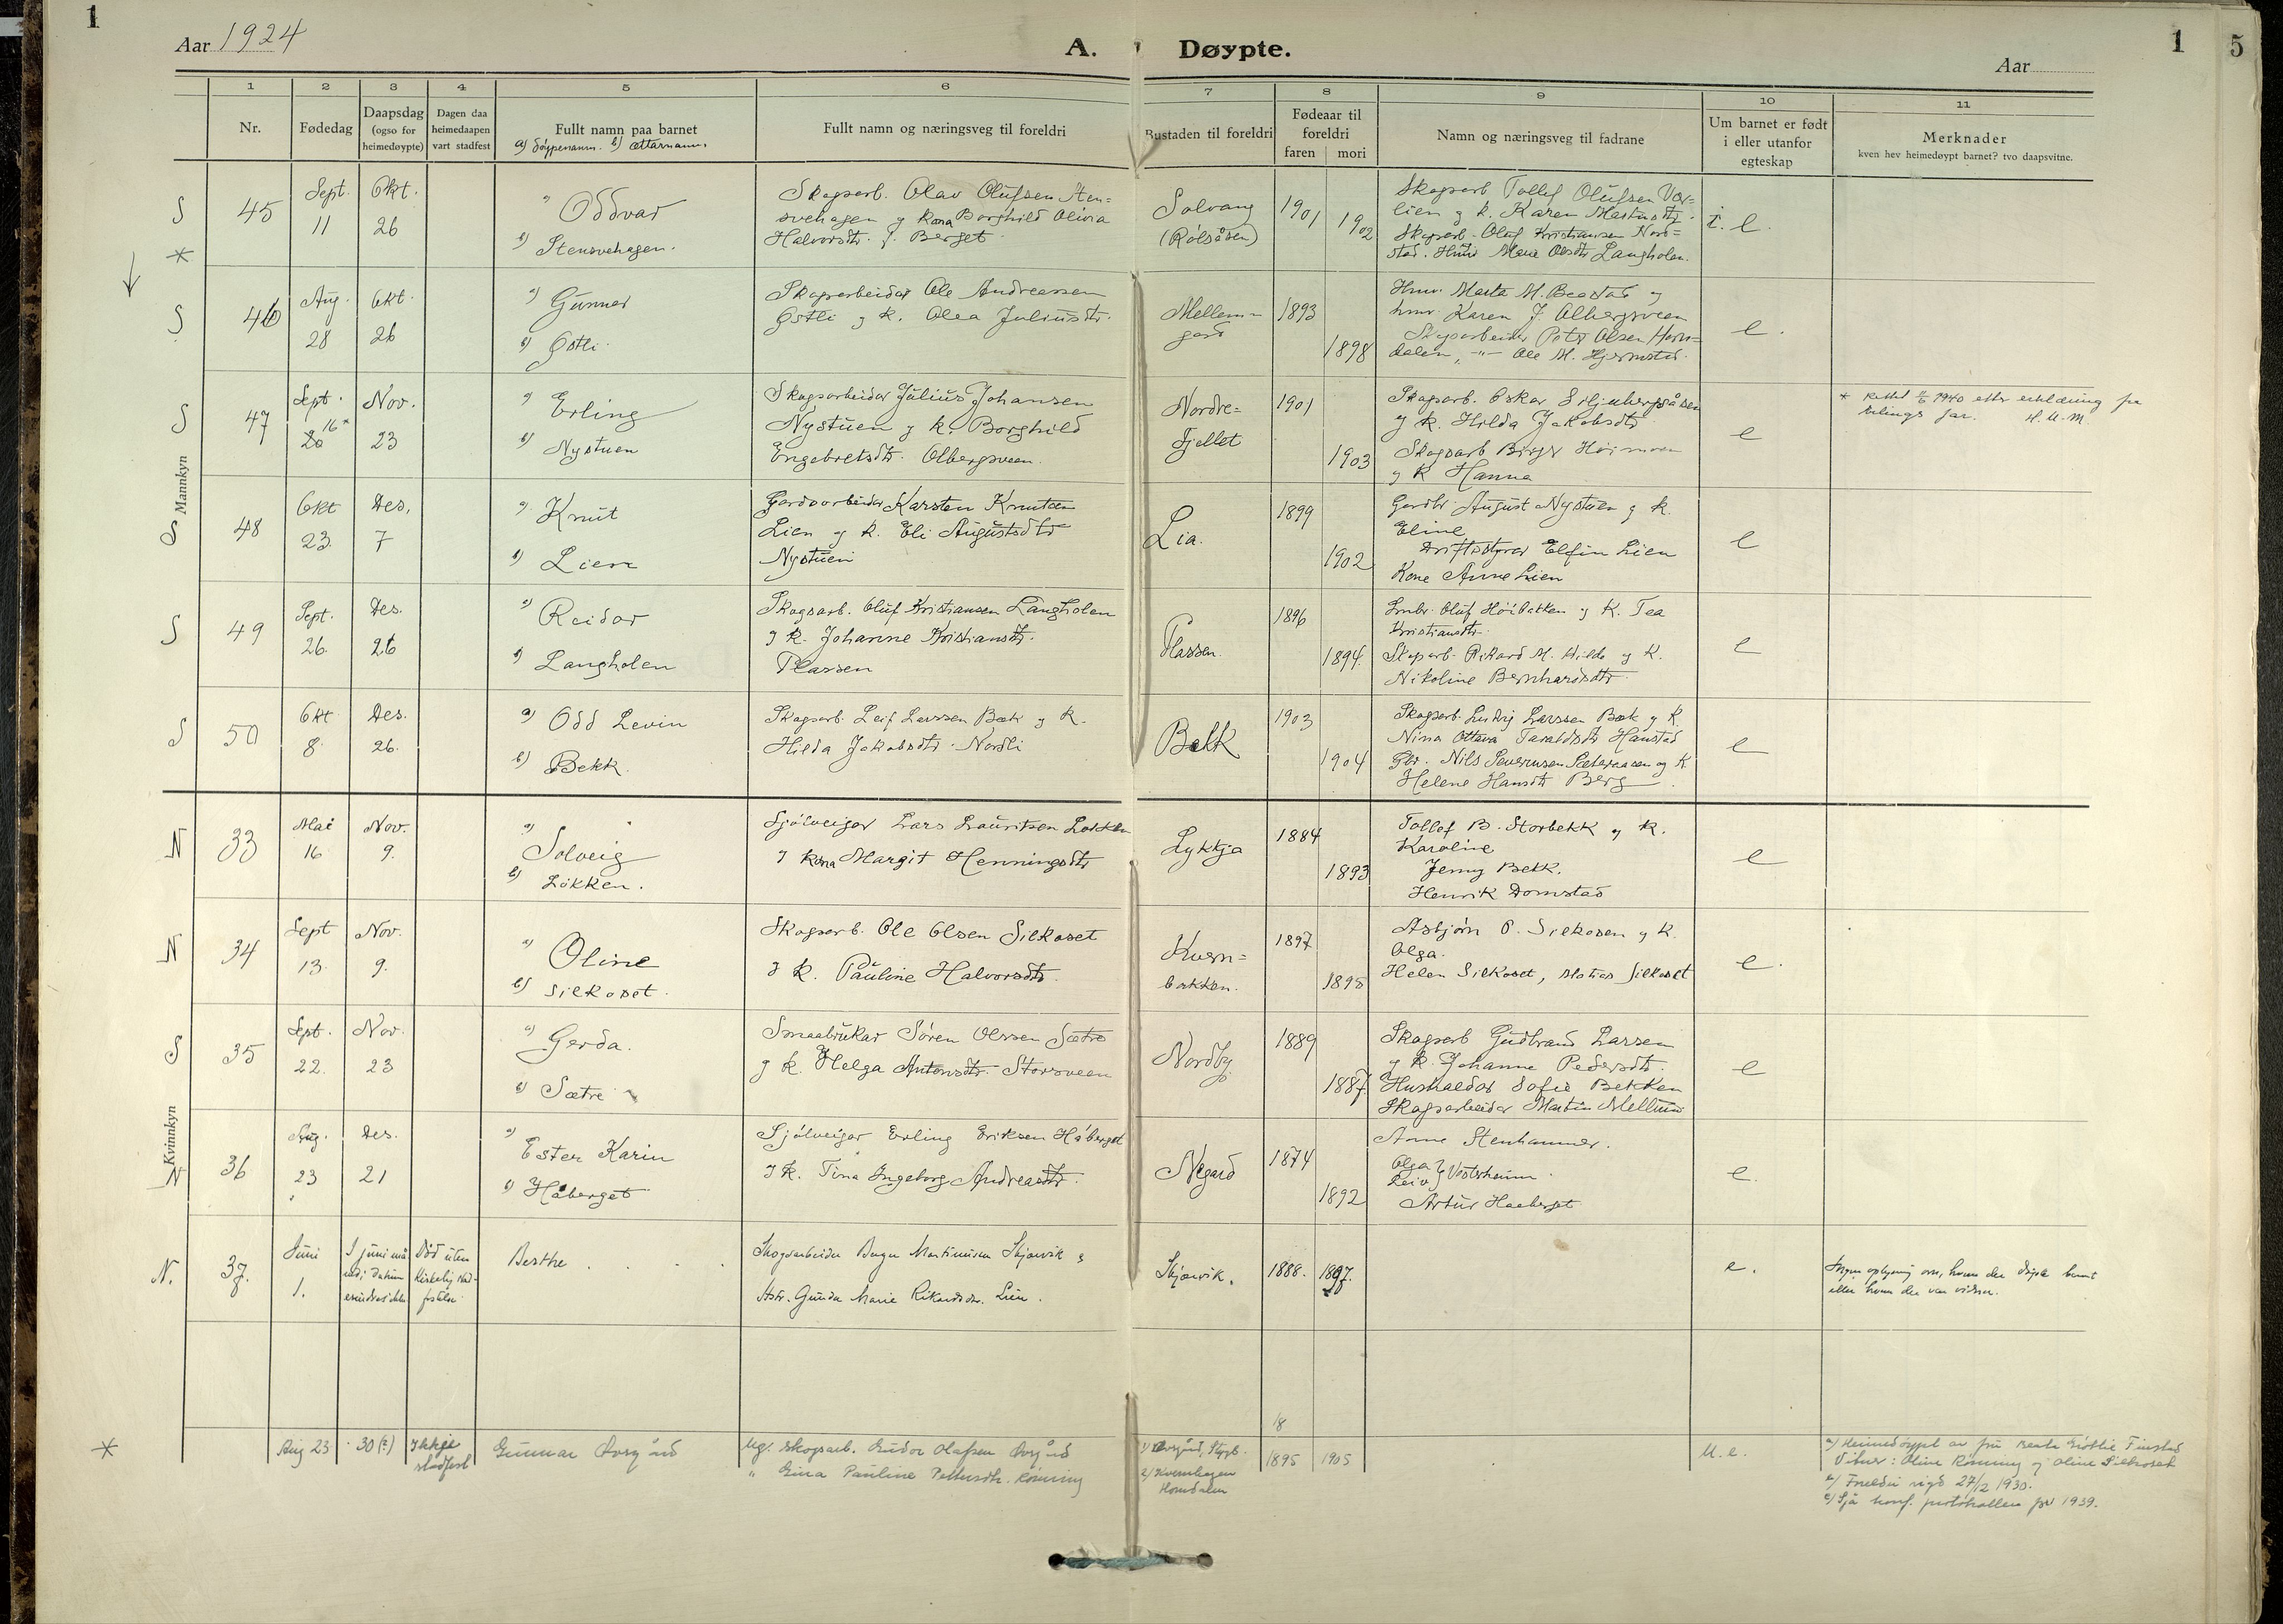 1
Aar 1924
A. Døypte.
Aar
1
5
1 2 3 4 5 6 7 8 9 10 11
Nr.
Fødedag
Daapsdag
(ogso for
heimedøypte)
Dagen daa
heimedaapen
vart stadfest
Fullt namn paa barnet
a) døypenamn. b) ættarnamn.
Fullt namn og næringsveg til foreldri
Bustaden til foreldri
Fødeaar til
foreldri
faren mori
Namn og næringsveg til fadrane
Um barnet er født
i eller utanfor
egteskap
Merknader
kven hev heimedøypt barnet? tvo daapsvitne.
Mannkyn
S
*
45
Sept.
11
Okt.
26
a) Oddvar
b) Stensvehagen.
Skogsarb. Olav Olufsen Sten=
svehagen g kona Borghild Olivia
Halvorsdtr. f. Berget
Solvang
(Rólsåsen)
1901
1902
Skogsarb Tollef Olufsen Vor=
lien g k. Karen
Skogsarb. Oluf Kristiansen Nord=
stad. Marie Olsdtr Langholen.
i. e.
S
46
Aug.
28
Okt.
26
a) Gunnar
b) Ostli
Skogsarbeidar Ole Andreassen
Ostli g k. Olea Juliusdtr.
Mellem=
gard
1893
1898
Marta M.
Karen J. Olbergsveen
Skogsarbeider Peter Olsen Horn=
dalen, -"- Ole M. Hjermstad.
e.
S
47
Sept.
16*
20
Nov.
23
a) Erling
b) Nystuen
Skogsarbeidar Julius Johansen
Nystuen g k. Borghild
Engebretsdtr. Olbergsveen.
Nordre=
Fjellet
1901
1903
Skogsarb. Oskar
g k. Hilda Jakobsdtr
Skogsarb Birger Höimoen
g k Hanna
e
* Rettet 1940 etter erklæring fra
far. H.M.M.
S
48
Okt
23.
Des.
7
a) Knut
b) Lien
Gardsarbeidar Karsten Knutsen
Lien g k. Eli Augustsdtr
Nystuen
Lia.
1899
1902
Gardbr. August Nystuen g k.
Eline
Driftsstyrar Elfin Lien
Kone Anne Lien
e
S
49
Sept.
26.
Des.
26
a) Reidar
b) Langholen
Skogsarb. Oluf Kristiansen Langholen
g k. Johanne Kristiansdtr.
Plassen
Plassen.
1896
1894.
Smbr. Oluf Höibakken g K. Tea
Kristiansdtr.
Skogsarb. Rikard M. Hilde g K.
Nikoline Bernhardsdtr.
e
S
50
Okt
8.
Des.
26.
a) Odd Levin
b) Bekk.
Skogsarb. Leif Larssen Bæk g k.
Hilda Jakobsdtr. Nordli
Bekk
1903
1904
Skogsarb. Ludvig Larssen Bæk g k.
Nina Ottera Taraldsdtr Hanstad
Gbr. Nils Severinsen Sæteraasen og k
Helene Hansdtr Berg
e
Kvinnkyn
N
33
Mai
16
Nov.
9.
a) Solveig
b) Lökken.
Sjölveigar Lars Lauritsen Løkken
g kona Margit Henningsdtr
Lykkja
1884
1893
Tollef B. Storbekk g k.
Karoline
Jenny Bekk.
Henrik Domstad
e
N
34
Sept
13.
Nov.
9.
a) Oline
b) Silkoset.
Skogsarb. Ole Olsen Silkoset
g k. Pauline Halvorsdtr.
Kvern=
bakken.
1897
1895
Asbjørn P. Silkosen g k.
Olga.
Helen Silkoset, Matias Silkoset
e.
S
35
Sept.
22.
Nov.
23
a) Gerda.
b) Sætre
Smaabrukar Sören Olssen Sætre
g k. Helga Antonsdtr. Storsveen
Nordby
1889
1887.
Skogsarb Gudbrand Larsen
g k. Johanne Pedersdtr.
Hushaldar Sofie Bekken
Skogsarbeidar Martin Mellum
e
N
36
Aug.
23
Des.
21
a) Ester Karin
b) Håberget
Sjölveigar Erling Eriksen Håberget
g k. Tina Ingeborg Andreasdtr.
Negard
1874
1892
Anne Stenhammer.
Olga } Vesterheim.
Leiv
Artur Haaberget
e.
N.
37.
Juni
1.
I juni må
ned; datum
erindres ikke
Död uten
kirkelig stad-
festelse.
Berthe
Skogsarbeider Birger Martinusen Skjærvik &
hstr. Gunda Marie Rikardsdtr. Lien.
Skjærvik.
1888.
1897.
e.
Ingen oplysning om, hvem der döpte barnet
eller hvem der var vidner.
*
Aug 23
30(?)
Ikkje
stadfest
Gunnar Avsgård
Ug. skogsarb. Gudor Olafsen Avsgård
" Gina Pauline Pettersdtr. Rönning
Avsgård,
b) Kvernhagen
Horndalen
18
1895
1905
U.e.
a) Heimedöypt av fru Finstad
Vitner: Oline Rönning og Oline Silkoset
b) Foreldre vigd 27/12 1930.
c) Sjå konf. protokollen for 1939.